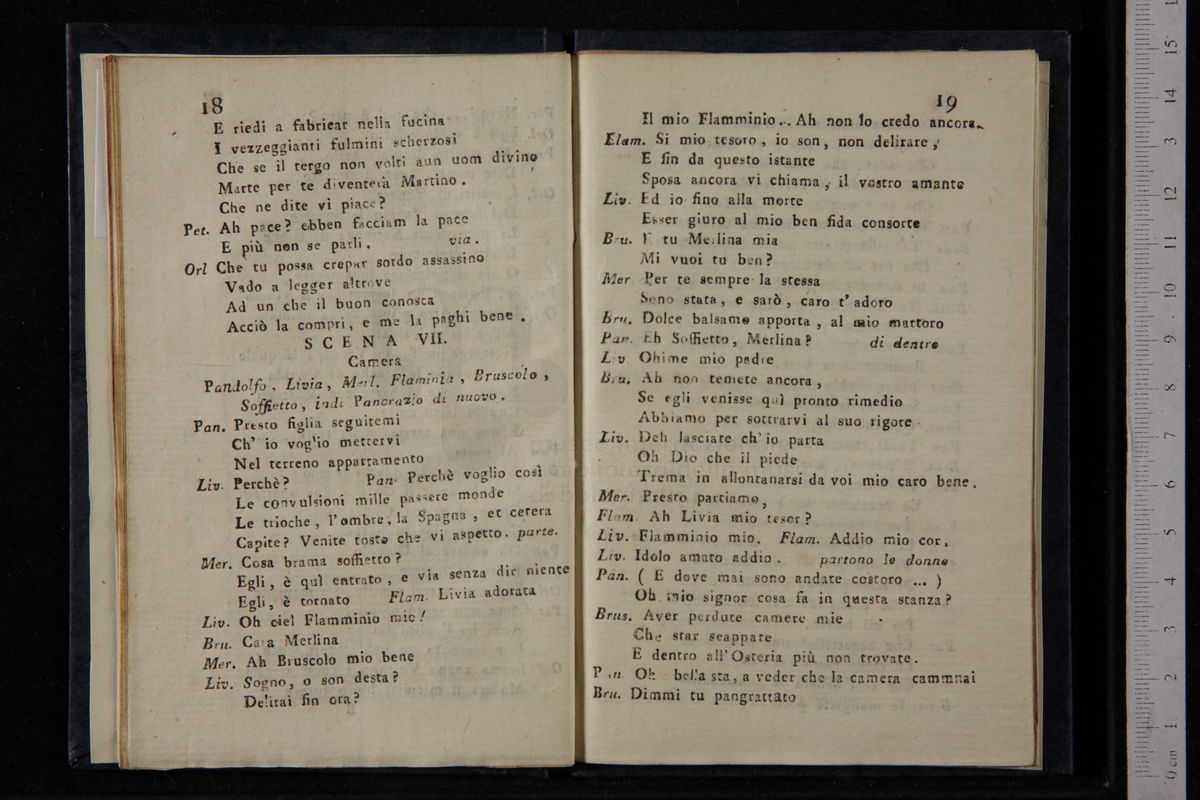 18
E riedi a fabricar nella fucina
I vezzeggianti fulmini scherzosi
Che se il tergo non volti aun uom divino
Marte per te diventerà Martino.
Che ne dite vi piace?
Pet. Ah pace? ebben facciam la pace
E più non se parli. via.
Orl Che tu possa crepar sordo assassino
Vado a legger altrove
Ad un che il buon conosca
Acciò la compri, e me la paghi bene.
SCENA VII.
Camera
Pandolfo, Livia, Merl. Flaminia, Bruscolo,
Soffietto, indi Pancrazio di nuovo.
Pan. Presto figlia seguitemi
Ch' io voglio mettervi
Nel terreno appartamento
Liv. Perchè? Pan. Perchè voglio così
Le convulsioni mille passere monde
Le trioche, l'ombre, la Spagna, et cetera
Capite? Venite tosto che vi aspetto. parte.
Mer. Cosa brama soffietto?
Egli, è quì entrato, e via senza dir niente
Egli, è tornato Flam. Livia adorata
Liv. Oh ciel Flamminio mio!
Bru. Cara Merlina
Mer. Ah Bruscolo mio bene
Liv. Sogno, o son desta?
Delirai fin ora?
19
Il mio Flamminio... Ah non lo credo ancora.
Elam. Si mio tesoro, io son, non delirare,
E fin da questo istante
Sposa ancora vi chiama, il vostro amante
Liv. Ed io fino alla morte
Esser giuro al mio ben fida consorte
Bru. E tu Merlina mia
Mi vuoi tu ben?
Mer Per te sempre la stessa
Sono stata, e sarò, caro t' adoro
Bru. Dolce balsamo apporta, al mio martoro
Pan. Eh Soffietto, Merlina? di dentro
Liv Ohime mio padre
Bru. Ah non temete ancora,
Se egli venisse quì pronto rimedio
Abbiamo per sottrarvi al suo rigore
Liv. Deh lasciate ch' io parta
Oh Dio che il piede
Trema in allontanarsi da voi mio caro bene.
Mer. Presto partiamo,
Flam Ah Livia mio tesor?
Liv. Flamminio mio. Flam. Addio mio cor.
Liv. Idolo amato addio. partono le donne
Pan. ( E dove mai sono andate costoro ... )
Oh mio signor cosa fa in questa stanza?
Brus. Aver perdute camere mie
Che star scappate
E dentro all' Osteria più non trovate.
Pan Oh bella sta, a veder che la camera cammnai
Bru. Dimmi tu pangrattato